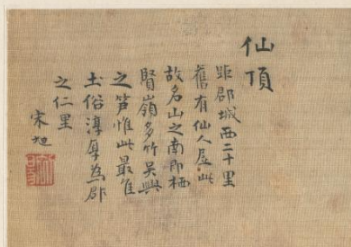 仙頂
距郡城西二十里
舊有仙人居此
故名山之南即栖
賢嶺多竹吳興
之笋惟此最佳
土俗淳厚為郡
之仁里
宋旭